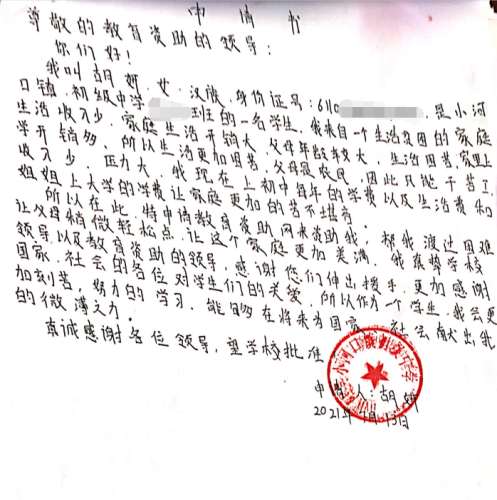 申请书
尊敬的教育资助的领导：
你们好！
我叫胡妍，女，汉族，身份证号：610 是小河
口镇初级中学 班的一名学生。我来自一个生活贫困的家庭
生活收入少，家庭生活开销大，父母年龄较大，生活困苦，家里上
学开销多，所以生活更加困苦，父母是农民，因此只能干苦工
收入少，压力大，我现在上初中每年的学费以及生活费和
姐姐上大学的学费让家庭更加的苦不堪言。
所以在此，特申请教育资助网来资助我，帮我渡过困难
让父母稍微轻松点，让这个家庭更加美满。我真挚学校
领导以及教育资助的领导，感谢您们伸出援手，更加感谢
国家、社会的各位对学生们的关爱，所以作为一个学生，我会更
加刻苦，努力的学习，能够在将来为国家、社会献出我
的微薄之力。
真诚感谢各位领导，望学校批准
小河口镇初级中学
申请人：胡妍
2021年 月13日